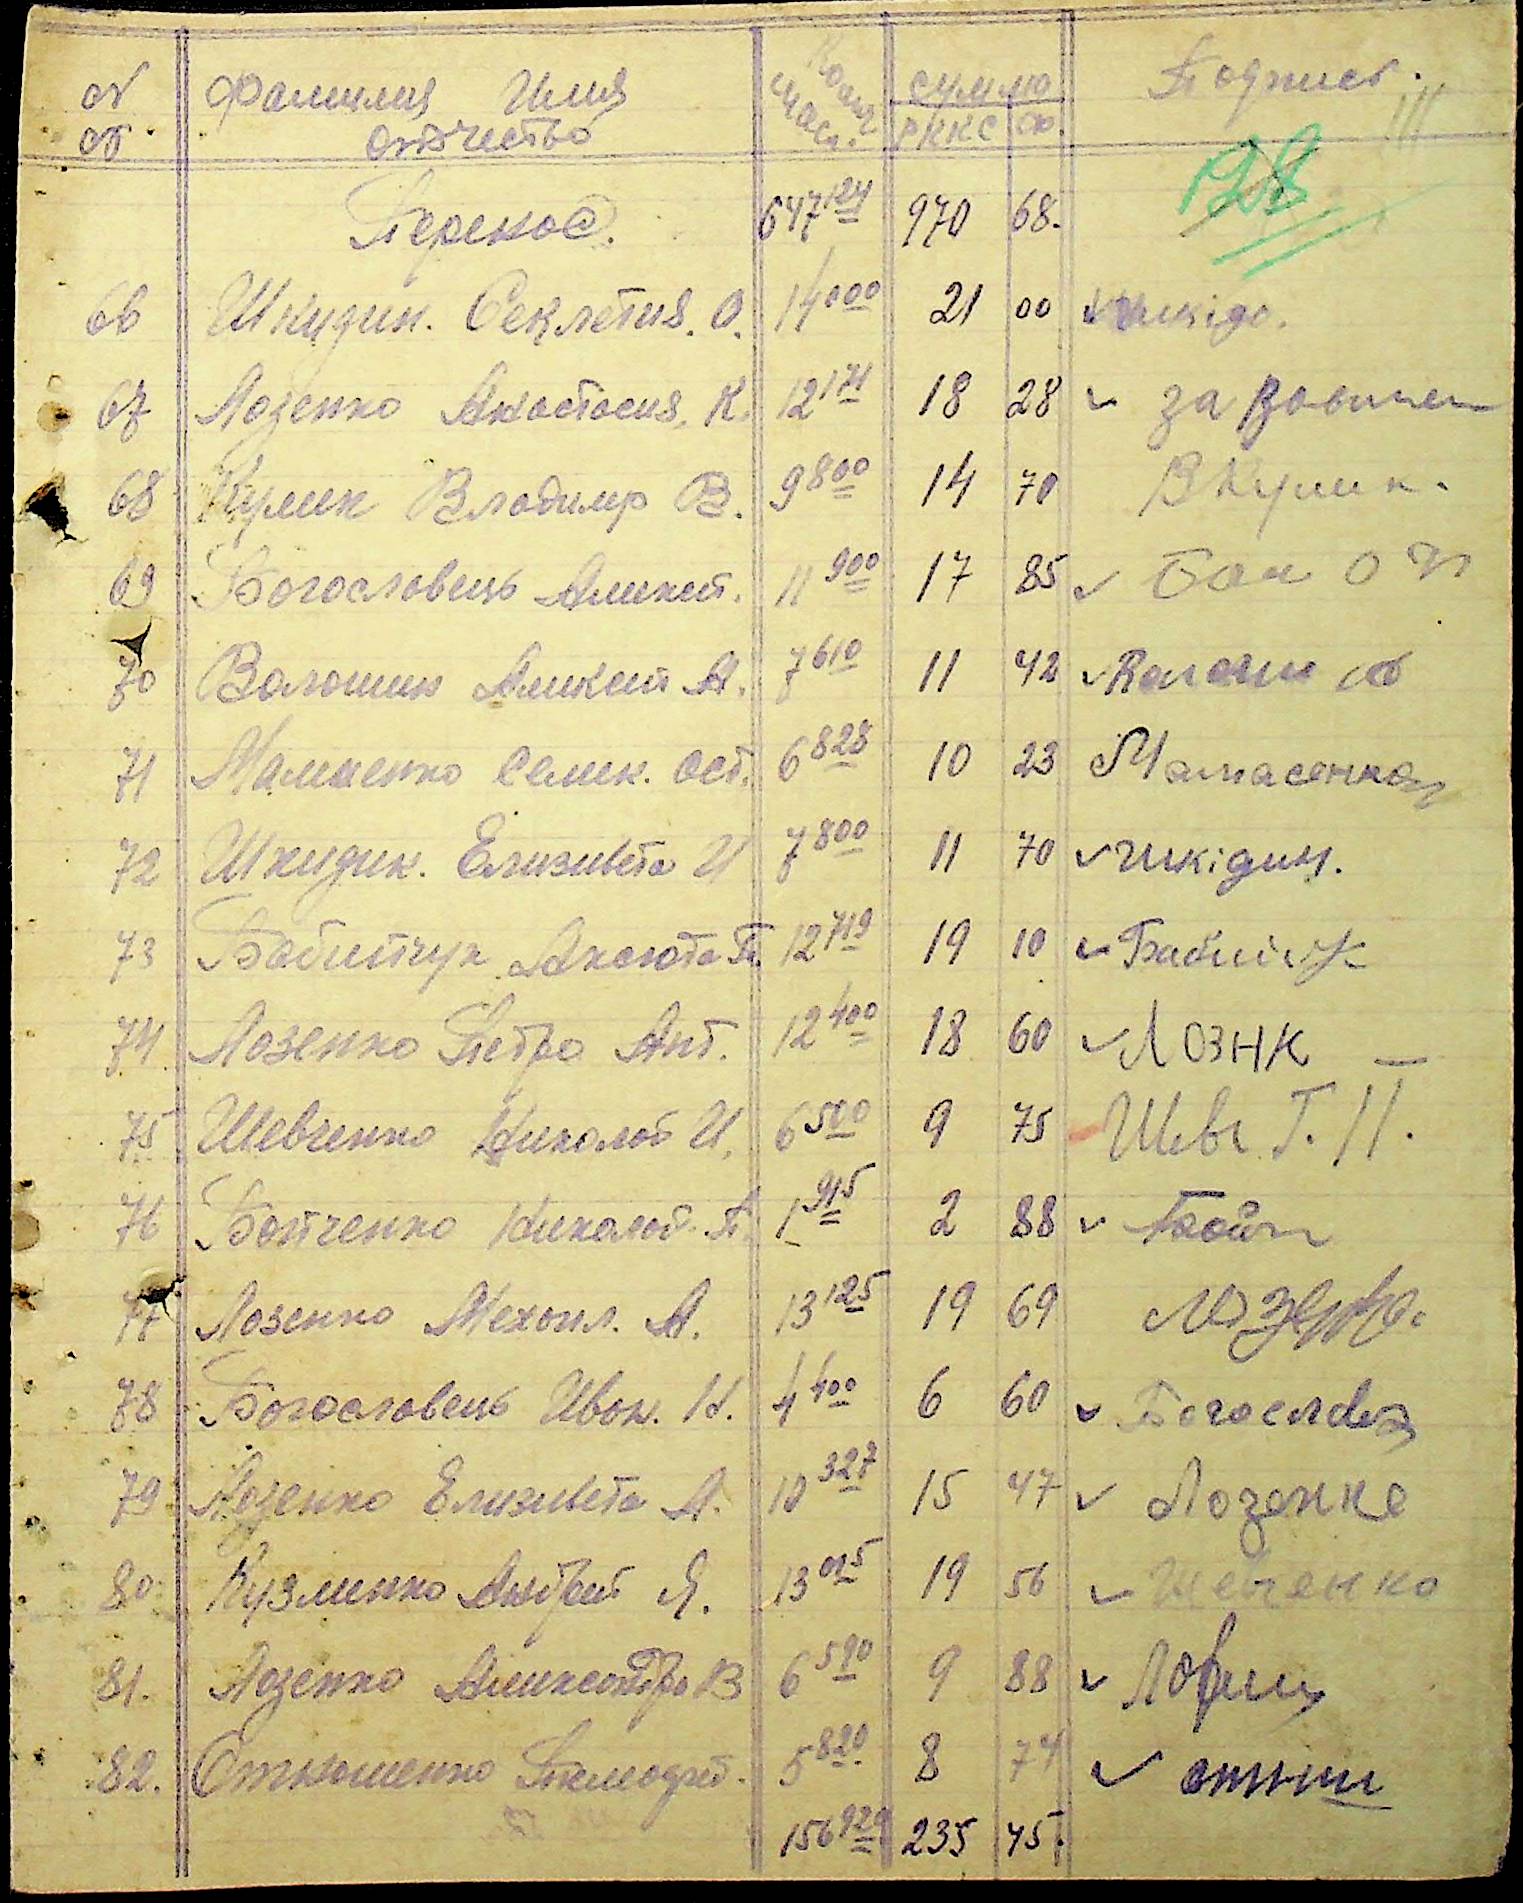 Фамилия Имя Сумма Подпись.
отдчество РККС
Перенос. 647 124 970 68.
128
66 Шкидин. Секлетия. О. 14 000 21 00
67 Лозенко Анастасия. К. 12 171 18 28 за
68 Кулик Владимир В. 9 800 14 70 В Кулик.
69 Богословець Алексей. 11 900 17 85
70 Волошин Алексей А. 7 610 11 42
71 Малиенко Семен. Ост. 6 828 10 23
72 Шкидин. Елизивета И 7 800 11 70 Шкідин.
73 Бабийчук Аксюта П. 12 719 19 10 Бабийчук
74 Лозенко Петро Ант. 12 400 18 60 Лознк
75 Шевченко Николай И. 6 500 9 75 Шевч Г. П.
76 Бойченко Николай. П. 1 915 2 88 Бойч
77 Лозенко Мехаил. А. 13 125 19 69
78 Богословець Иван. Н. 4 400 6 60 Богослов
79 Лозенко Елизивета А. 10 327 15 47 Лозенко
80 Кузменко Андрей Я. 13 015 19 56 Шевченко
81. Лозенко Александра В 6 590 9 88
82. 5 820 8 74
156 920 235 45.